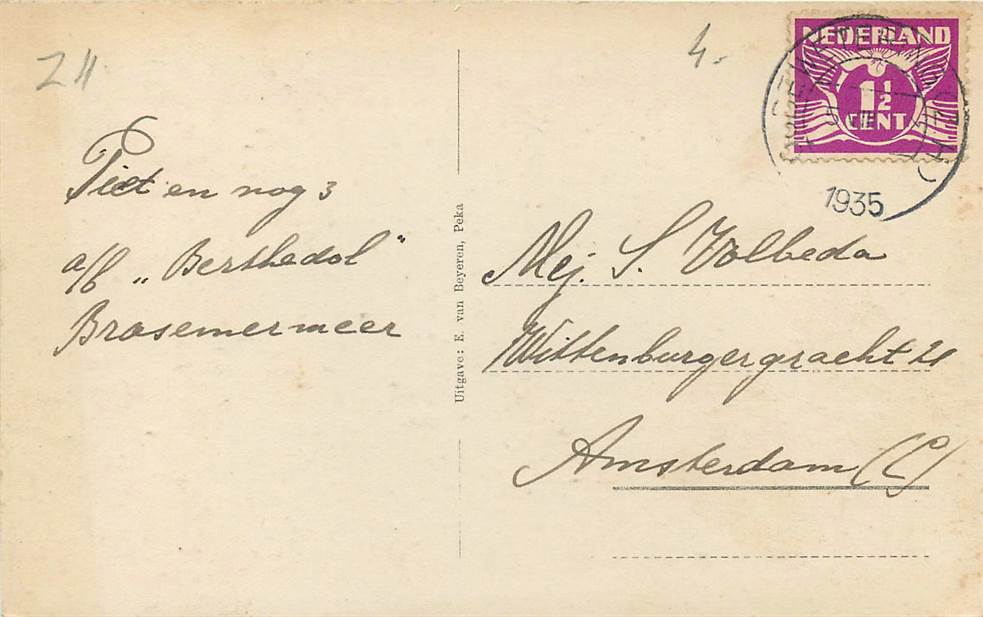 ZH
4.-
NEDERLAND
1½
CENT
1935
Piet en nog 3
a/b „Berthedol"
Brasemermeer
Uitgave: E. van Beyeren, Peka
Mej. S. Volbeda
Wittenburgergracht 21
Amsterdam (C)